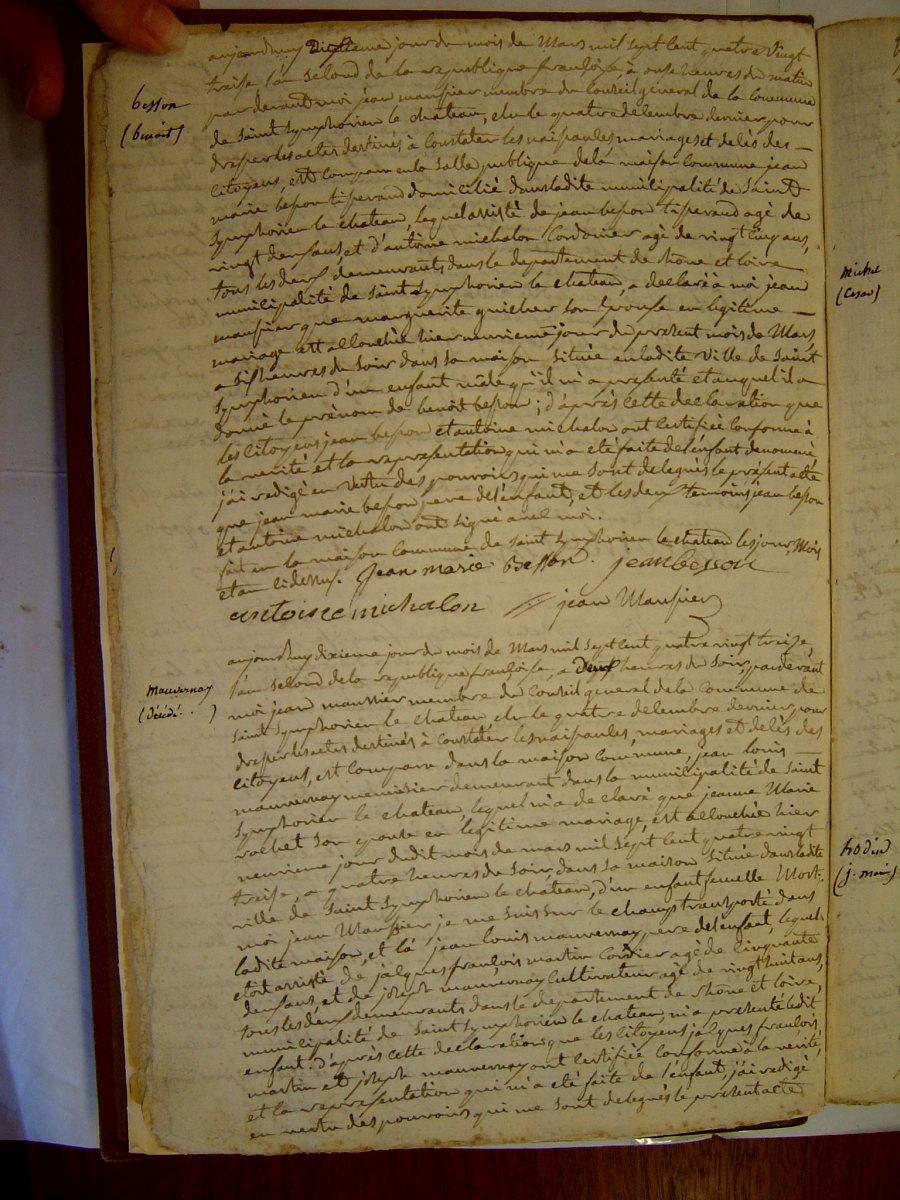 aujourd'huy Dixieme jour du mois de Mars mil sept cent quatre vingt
treise l'an second de la republique françoise, à onse heures du matin
par devant moi jean maussier membre du Conseil general de la Commune
de Saint Symphorien le chateau, elu le quatre decembre dernier pour
dresser les actes destinés à Constater les naissances mariages et décès des
Citoyens, est comparu en la salle publique de la maison Commune jean
marie besson tisserand domicilié dans ladite municipalité de Saint
Symphorien le chateau, lequel assisté de jean besson tisserand agé de
vingt deux ans, et d'antoine michalon Cordonier agé de vingt cinq ans,
tous les deux demeurants dans le departement de rhône et loire
municipalité de Saint Symphorien le chateau, a declaré à moi jean
maussier que marguerite guicher son Epouse en legitime
mariage est accouchée hier neuvieme jour du present mois de Mars
a six heures du Soir dans sa maison située en ladite Ville de Saint
Symphorien d'un enfant mâle qu'il m'a presenté et auquel il a
donné le prénom de benoit besson ; d'après cette declaration que
les Citoyens jean besson et antoine michalon ont certifiée conforme à
la verité et la representation qui m'a eté faite de l'enfant denommé,
j'ai redigé en vertu des pouvoirs qui me sont delegués le présent acte
que jean marie besson pere de l'enfant, et les deux temoins jean besson
et antoine michalon ont signé avec moi.
fait en la maison Commune de Saint Symphorien le chateau les jour, Mois
et an cidessus. Jean marie Besson. jean besson
antoine michalon jean Maussier
besson
(benoit)
aujourd'huy dixieme jour du mois de Mars mil sept cent quatre vingt treise,
l'an second de la republique françoise, a Deux heures du Soir, pardevant
moi jean maussier membre du Conseil general de la Commune de
Saint Symphorien le chateau, elu le quatre decembre dernier pour
dresser les actes destinés à constater les naissances, mariages et décès des
citoyens, est comparu dans la maison commune, jean louis
mauvernay menuisier demeurant dans la municipalité de Saint
Symphorien le chateau, lequel m'a declaré que jeanne Marie
rochet son epouse en legitime mariage, est accouchée hier
neuvieme jour dudit mois de mars mil sept cent quatre vingt
treise, a quatre heures du Soir, dans sa maison située dans ladite
ville de Saint Symphorien le chateau, d'un enfant femelle Mort.
moi jean Maussier je me suis sur le champ transporté dans
ladite maison, et là jean louis mauvernay pere de l'enfant, lequel
etoit assisté de jacques françois martin Cordier agé de Cinquante
deux ans, et de joseph mauvernay Cultivateur agé de vingt huit ans,
tous les deux demeurants dans le departement de rhône et loire,
municipalité de Saint Symphorien le chateau, m'a presenté ledit
enfant. D'après cette declaration que les Citoyens jacques françois
martin et joseph mauvernay ont certifiée conforme à la verité,
et la representation qui m'a eté faite de l'enfant, j'ai redigé
en vertu des pouvoirs qui me sont delegués le présent acte
mauvernay
(Décédé. )
michel
(Cesar)
bodin